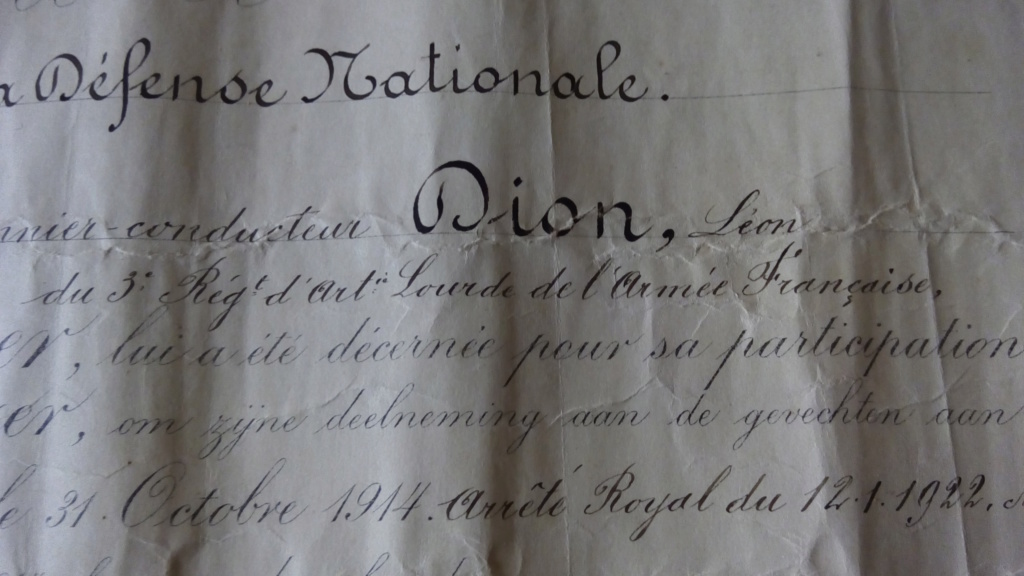 Défense Nationale.
nnier-conducteur Dion, Léon
du 3e Régt d'Artie Lourde de l'Armée Française,
er, lui a été décernée pour sa participation
er, om zijne deelneming aan de gevechten aan
le 31. Octobre 1914. Arrêté Royal du 12.1.1922.